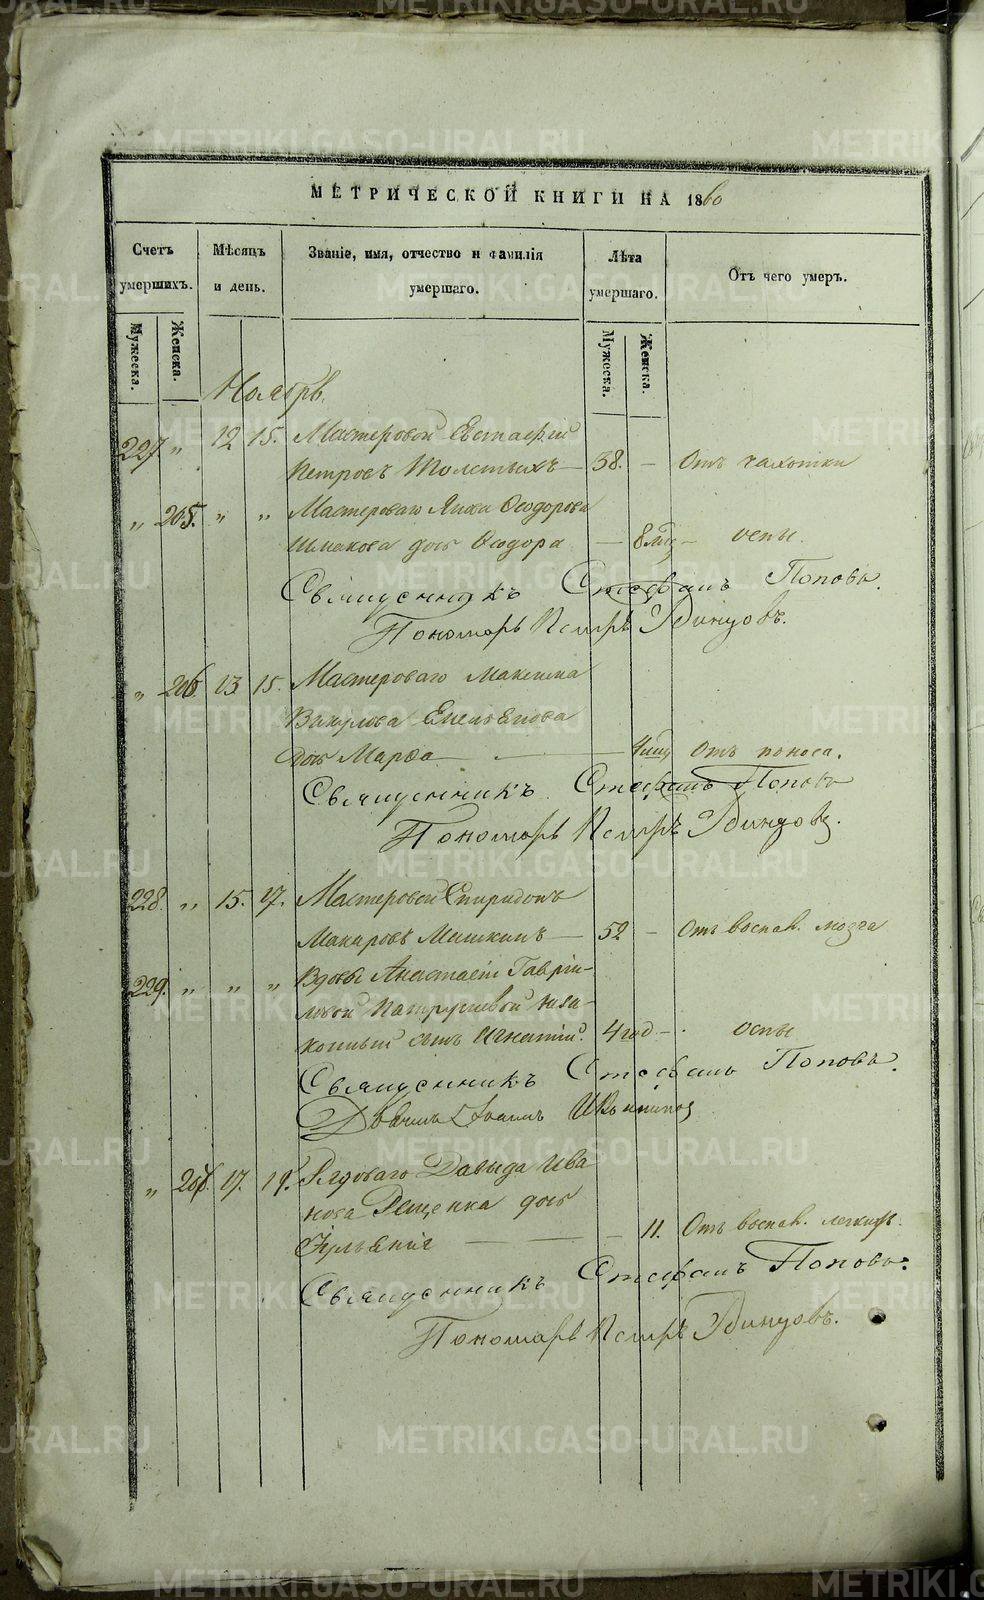 МЕТРИЧЕСКОЙ КНИГИ НА 1860
Счетъ умершихъ.
Мужеска.
Женска.
Мѣсяцъ и день.
Званіе, имя, отчество и фамилія умершаго.
Лѣта умершаго.
Мужеска.
Женска.
Отъ чего умеръ.
Ноябрь.
227. " 12 15. Мастеровой Евстафій
Петровъ Толстыхъ — 38. — Отъ чахотки
" 205. " " Мастероваго Якова Ѳеодорова
дочь Ѳеодора — 8 мѣс — оспы.
Священникъ Стефанъ Поповъ.
Пономарь Петръ Одинцовъ.
" 206. 13 15. Мастероваго Максима
Вакулова
дочь Марѳа — 4 мѣс Отъ поноса.
Священникъ Стефанъ Поповъ
Пономарь Петръ Одинцовъ.
228. " 15. 17. Мастеровой Спиридонъ
Макаровъ Мишкинъ — 52 — Отъ воспал. мозга
229. " " " Вдовы Анастасіи Гаврі-
ловой Патрушевой неза-
конный сынъ Игнатій. 4 год — оспы
Священникъ Стефанъ Поповъ.
Дьячекъ Іоаннъ
" 207. 17. 19. Рядоваго Давыда Ива
нова дочь
Іуліанія — — 11. Отъ воспал. легкихъ.
Священникъ Стефанъ Поповъ.
Пономарь Петръ Одинцовъ.
METRIKI.GASO-URAL.RU